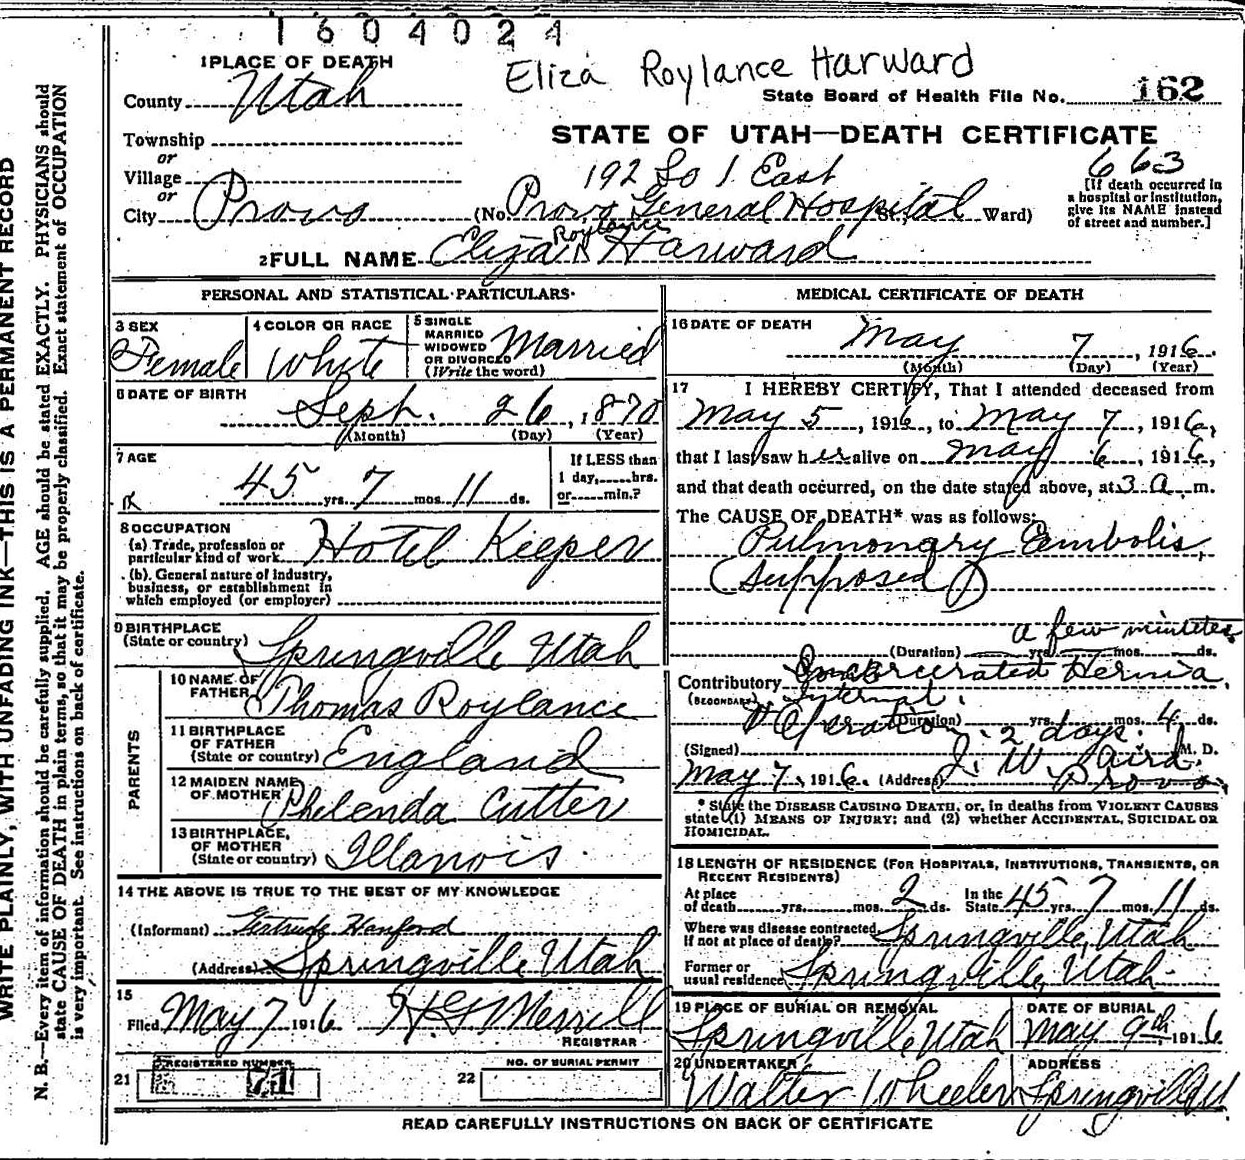 1604024
Eliza Roylance Harward
1 PLACE OF DEATH
County Utah
State Board of Health File No. 162
Township
or
Village
or
City Provo
STATE OF UTAH—DEATH CERTIFICATE
192 So 1 East
663
(No. Provo General Hospital St, Ward)
[If death occurred in a hospital or institution, give its NAME instead of street and number.]
Roylance
2 FULL NAME Eliza R Harward
PERSONAL AND STATISTICAL PARTICULARS
3 SEX Female
4 COLOR OR RACE Whyte
5 SINGLE MARRIED WIDOWED OR DIVORCED (Write the word) Married
6 DATE OF BIRTH Seph. 26, 1870
(Month) (Day) (Year)
7 AGE 45 yrs. 7 mos. 11 ds.
If LESS than 1 day, hrs. or min.?
8 OCCUPATION
(a) Trade, profession or particular kind of work Hotel Keeper
(b) General nature of industry, business, or establishment in which employed (or employer)
9 BIRTHPLACE (State or country) Springville Utah
PARENTS
10 NAME OF FATHER Thomas Roylance
11 BIRTHPLACE OF FATHER (State or country) England
12 MAIDEN NAME OF MOTHER Phelenda Cutter
13 BIRTHPLACE OF MOTHER (State or country) Illanois.
14 THE ABOVE IS TRUE TO THE BEST OF MY KNOWLEDGE
(Informant) Gertrude Hanford
(Address) Springville, Utah
15 Filed May 7 1916 H G Merrill
REGISTRAR
21 REGISTERED NUMBER 71
22 NO. OF BURIAL PERMIT
MEDICAL CERTIFICATE OF DEATH
16 DATE OF DEATH May 7, 1916.
(Month) (Day) (Year)
17 I HEREBY CERTIFY, That I attended deceased from
May 5, 1916, to May 7, 1916,
that I last saw her alive on May 6, 1916,
and that death occurred, on the date stated above, at 3 a. m.
The CAUSE OF DEATH* was as follows:
Pulmonary Embolis,
(Supposed)
a few minutes
(Duration) yrs. mos. ds.
Contributory (SECONDARY) Incarcerated Hernia,
Internal.
Operation. 2 days. (Duration) yrs. mos. 4 ds.
(Signed) J. W. Aird. M. D.
May 7, 1916. (Address) Provo,
* State the DISEASE CAUSING DEATH, or, in deaths from VIOLENT CAUSES
state (1) MEANS OF INJURY; and (2) whether ACCIDENTAL, SUICIDAL OR
HOMICIDAL.
18 LENGTH OF RESIDENCE (FOR HOSPITALS, INSTITUTIONS, TRANSIENTS, OR
RECENT RESIDENTS)
At place of death yrs. mos. 2 ds. In the State 45 yrs. 7 mos. 11 ds.
Where was disease contracted, If not at place of death? Springville, Utah
Former or usual residence Springville, Utah.
19 PLACE OF BURIAL OR REMOVAL Springville, Utah
DATE OF BURIAL May 9th 1916
20 UNDERTAKER Walter Wheeler
ADDRESS Springville U
READ CAREFULLY INSTRUCTIONS ON BACK OF CERTIFICATE
WRITE PLAINLY, WITH UNFADING INK—THIS IS A PERMANENT RECORD
N. B.—Every item of information should be carefully supplied. AGE should be stated EXACTLY. PHYSICIANS should
state CAUSE OF DEATH in plain terms, so that it may be properly classified. Exact statement of OCCUPATION
is very important. See instructions on back of certificate.